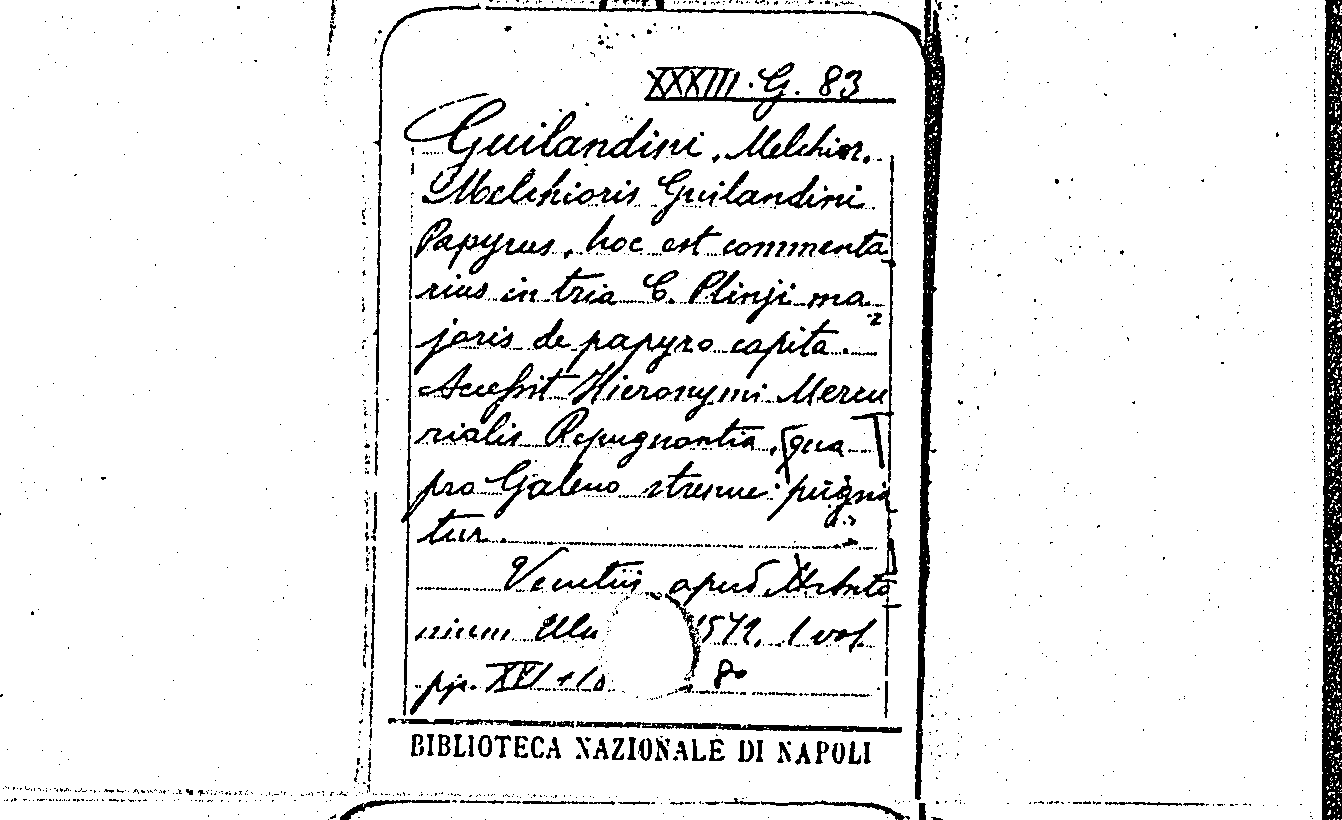 XXXIII. G. 83
Guilandini, Melchior.
Melchioris Guilandini
Papyrus, hoc est commenta
rius in tria C. Plinji ma
joris de papyro capita.
Accessit Hieronymi Mercu
rialis Repugnantia, qua
pro Galeno strenue pugna
tur.
Venetiis, apud M. Anto
nium Ulm 1572. 1 vol.
pp. XVI + 8°
BIBLIOTECA NAZIONALE DI NAPOLI